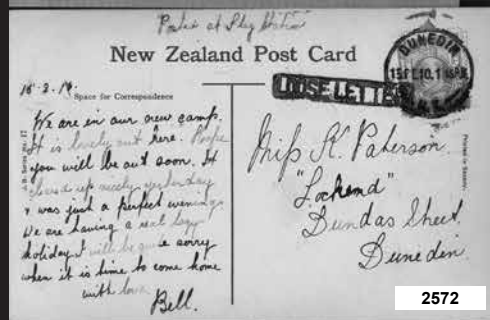 Posted at Ship Station
New Zealand Post Card
DUNEDIN
15 FE.10.1
N.Z.
LOOSE LETTER
15.2.10.
Space for Correspondence
We are in our new camp.
It is lovely out here. Hope
you will be out soon. It
cleared up nicely yesterday
& was just a perfect evening
We are having a real lazy
holiday I will be quite sorry
when it is time to come home
with love
Bell.
Miss K. Paterson
"Lockend"
Dundas Street
Dunedin
2572